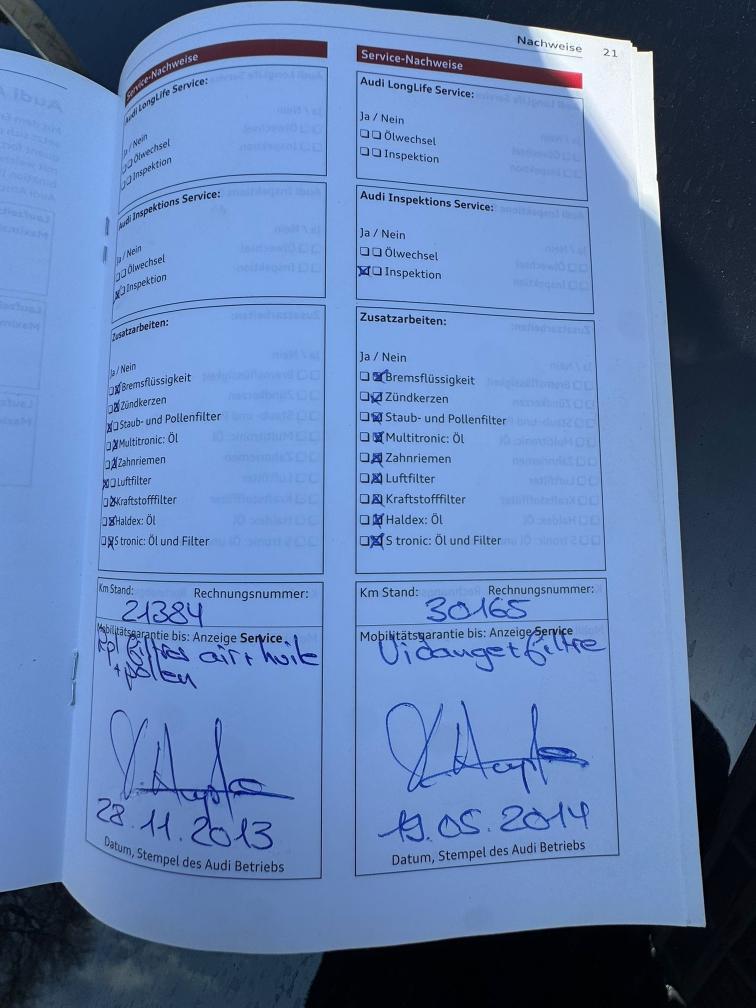 Nachweise 21
Service-Nachweise
Audi LongLife Service:
Ja / Nein
Ölwechsel
Inspektion
Audi Inspektions Service:
Ja / Nein
Ölwechsel
Inspektion
Zusatzarbeiten:
Ja / Nein
Bremsflüssigkeit
Zündkerzen
Staub- und Pollenfilter
Multitronic: Öl
Zahnriemen
Luftfilter
Kraftstofffilter
Haldex: Öl
S tronic: Öl und Filter
Km Stand: Rechnungsnummer:
21384
Mobilitätsgarantie bis: Anzeige Service
filtres air + huile
+ pollen
28.11.2013
Datum, Stempel des Audi Betriebs
Service-Nachweise
Audi LongLife Service:
Ja / Nein
Ölwechsel
Inspektion
Audi Inspektions Service:
Ja / Nein
Ölwechsel
Inspektion
Zusatzarbeiten:
Ja / Nein
Bremsflüssigkeit
Zündkerzen
Staub- und Pollenfilter
Multitronic: Öl
Zahnriemen
Luftfilter
Kraftstofffilter
Haldex: Öl
S tronic: Öl und Filter
Km Stand: Rechnungsnummer:
30165
Mobilitätsgarantie bis: Anzeige Service
Vidange+filtre
19.05.2014
Datum, Stempel des Audi Betriebs